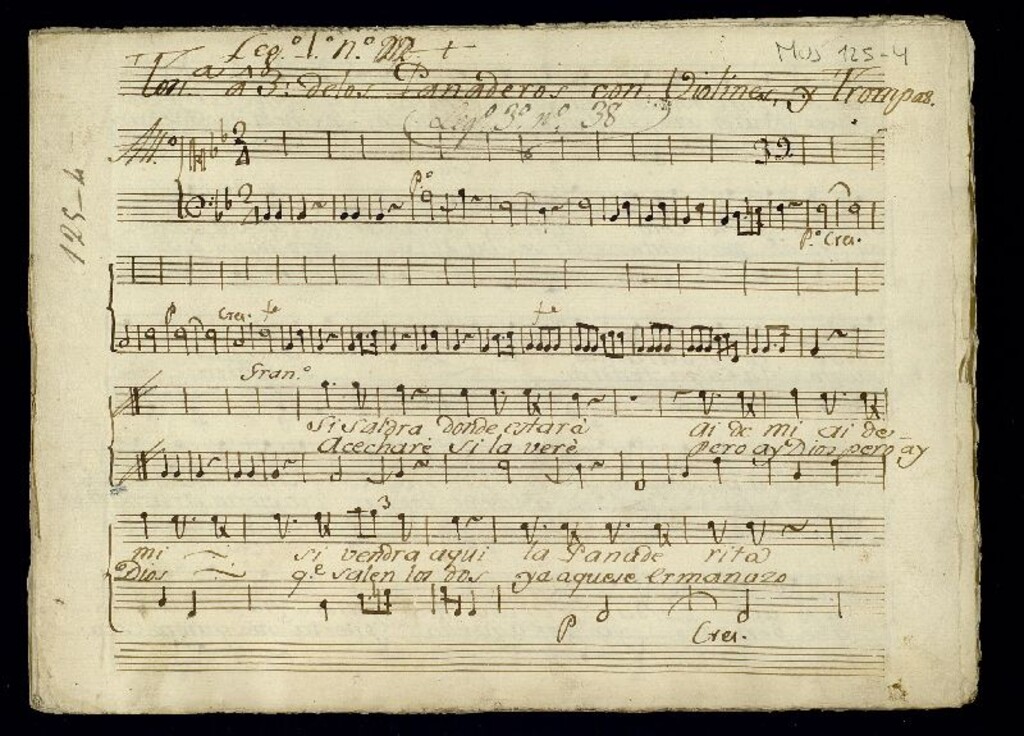 Leg.º 1.º n.º
Mus 125-4
Ton.ª a 3. de los Panaderos con Violines, y Trompas.
Leg.º 3.º n.º 38
All.º
32
125-4
P.º
P.º Cres.
P Cres. fe fe
Fran.º
Si saldra donde estarà ai de mi ai de
Acecharè si la verè pero ay Dios pero ay
3
mi si vendra aqui la Panade rita
Dios q.e salen los dos ya aquese Ermanazo
P Cres.